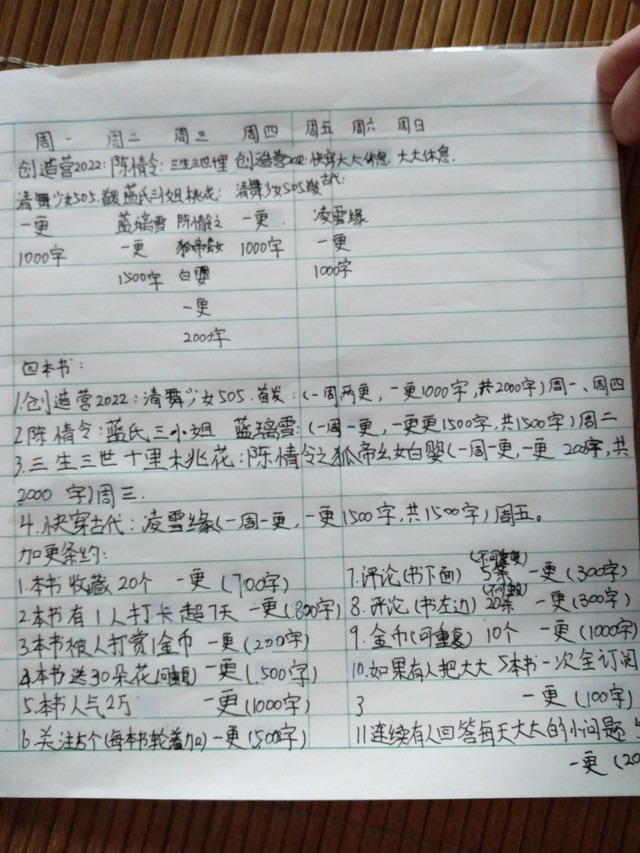 周一 周二 周三 周四 周五 周六 周日
创造营2022: 陈情令: 三生三世十里 创造营2022: 快穿大大休息 大大休息.
清舞少女505.首发 蓝氏三小姐 桃花: 清舞少女505首发 古代:
一更 蓝璃雪 陈情令之 一更. 凌雪缘
1000字 一更 狐帝幺女 1000字 一更
1500字 白婴 1000字
一更
2000字
四本书:
1.创造营2022:清舞少女505.首发:(一周两更,一更1000字,共2000字)周一、周四
2.陈情令:蓝氏三小姐 蓝璃雪:(一周一更,一更更1500字,共1500字)周二
3.三生三世十里桃花:陈情令之狐帝幺女白婴(一周一更,一更200字,共
2000字)周三.
4.快穿古代:凌雪缘(一周一更,一更1500字,共1500字)周五。
加更条约:
1.本书收藏20个 一更(700字)
2.本书有1人打卡超7天 一更(800字)
3.本书被人打赏1金币 一更(200字)
4.本书送30朵花(可重复) 一更(1500字)
5.本书人气2万 一更(1000字)
6.关注5个(每本书轮着加)一更(500字)
7.评论(书下面)(不可重复)5条 一更(300字)
8.评论(书左边)(不可重复)20条 一更(300字)
9.金币(可重复)10个 一更(1000字)
10.如果有人把大大5本书一次全订阅
3 一更(100字)
11.连续有人回答每天大大的小问题
一更(20